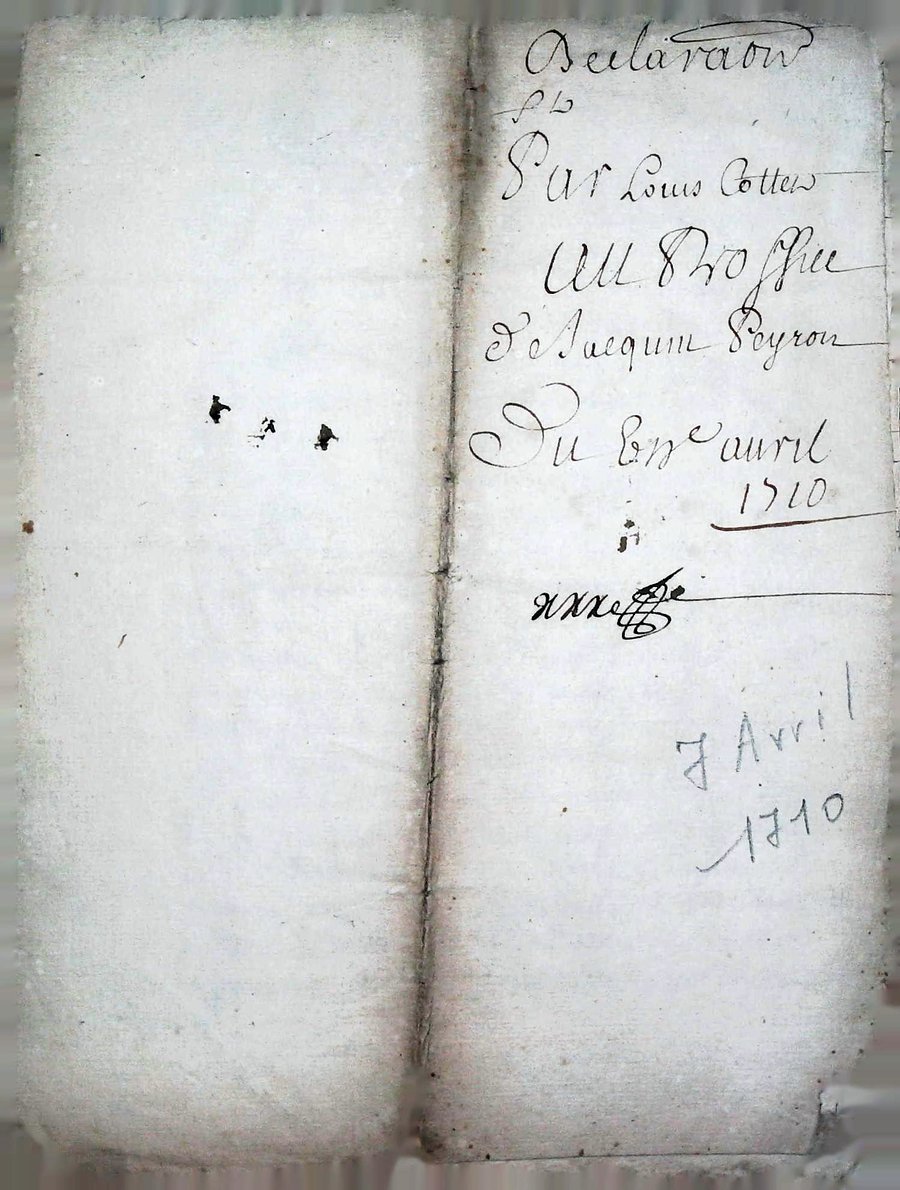 Declaraon
Par Louis Cotten
Au Proffict
d'e Jacquim Peyron
Du avril
1710
7 Avril
1710